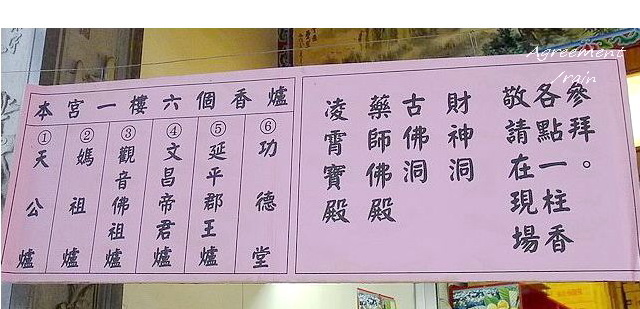 本宮一樓六個香爐
①天公爐
②媽祖爐
③觀音佛祖爐
④文昌帝君爐
⑤延平郡王爐
⑥功德堂
凌霄寶殿
藥師佛殿
古佛洞
財神洞
敬請在現場
各點一柱香
參拜。
Agreement
/rain